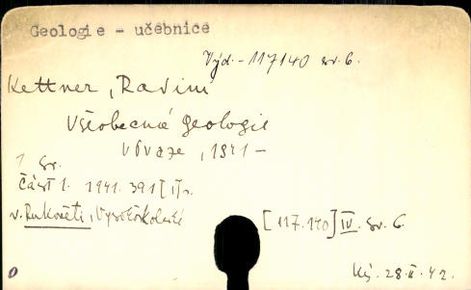 Geologie - učebnice
Výd. - 117140 sv. 6.
Kettner, Radim
Všeobecná geologie
V Praze, 1941 -
1 sv.
Část 1. 1941. 391 [1] s.
v. Rukověti, Vysokoškolské [117.140] IV. sv. 6.
28.II.42.
0